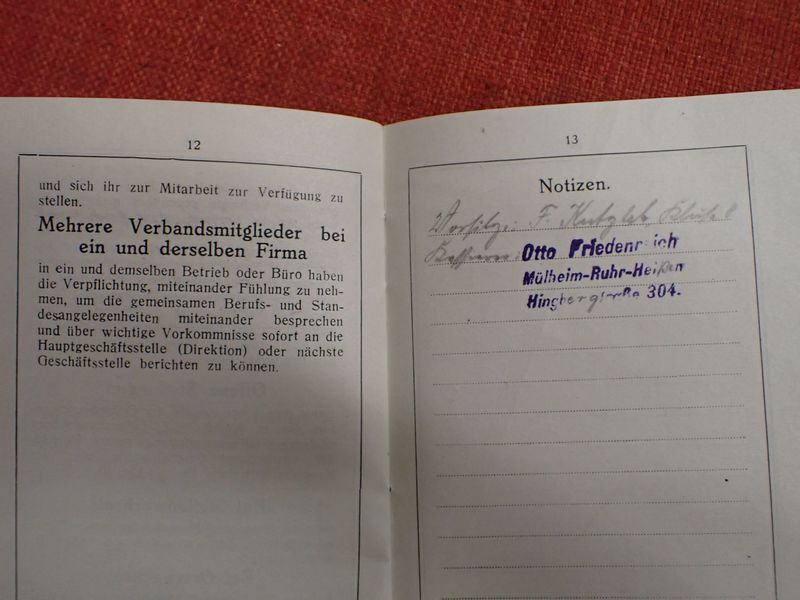 12
und sich ihr zur Mitarbeit zur Verfügung zu
stellen.
Mehrere Verbandsmitglieder bei
ein und derselben Firma
in ein und demselben Betrieb oder Büro haben
die Verpflichtung, miteinander Fühlung zu neh-
men, um die gemeinsamen Berufs- und Stan-
desangelegenheiten miteinander besprechen
und über wichtige Vorkommnisse sofort an die
Hauptgeschäftsstelle (Direktion) oder nächste
Geschäftsstelle berichten zu können.
13
Notizen.
Vorsitz. F.
Otto Friedenreich
Mülheim-Ruhr-Heißen
Hingbergstraße 304.